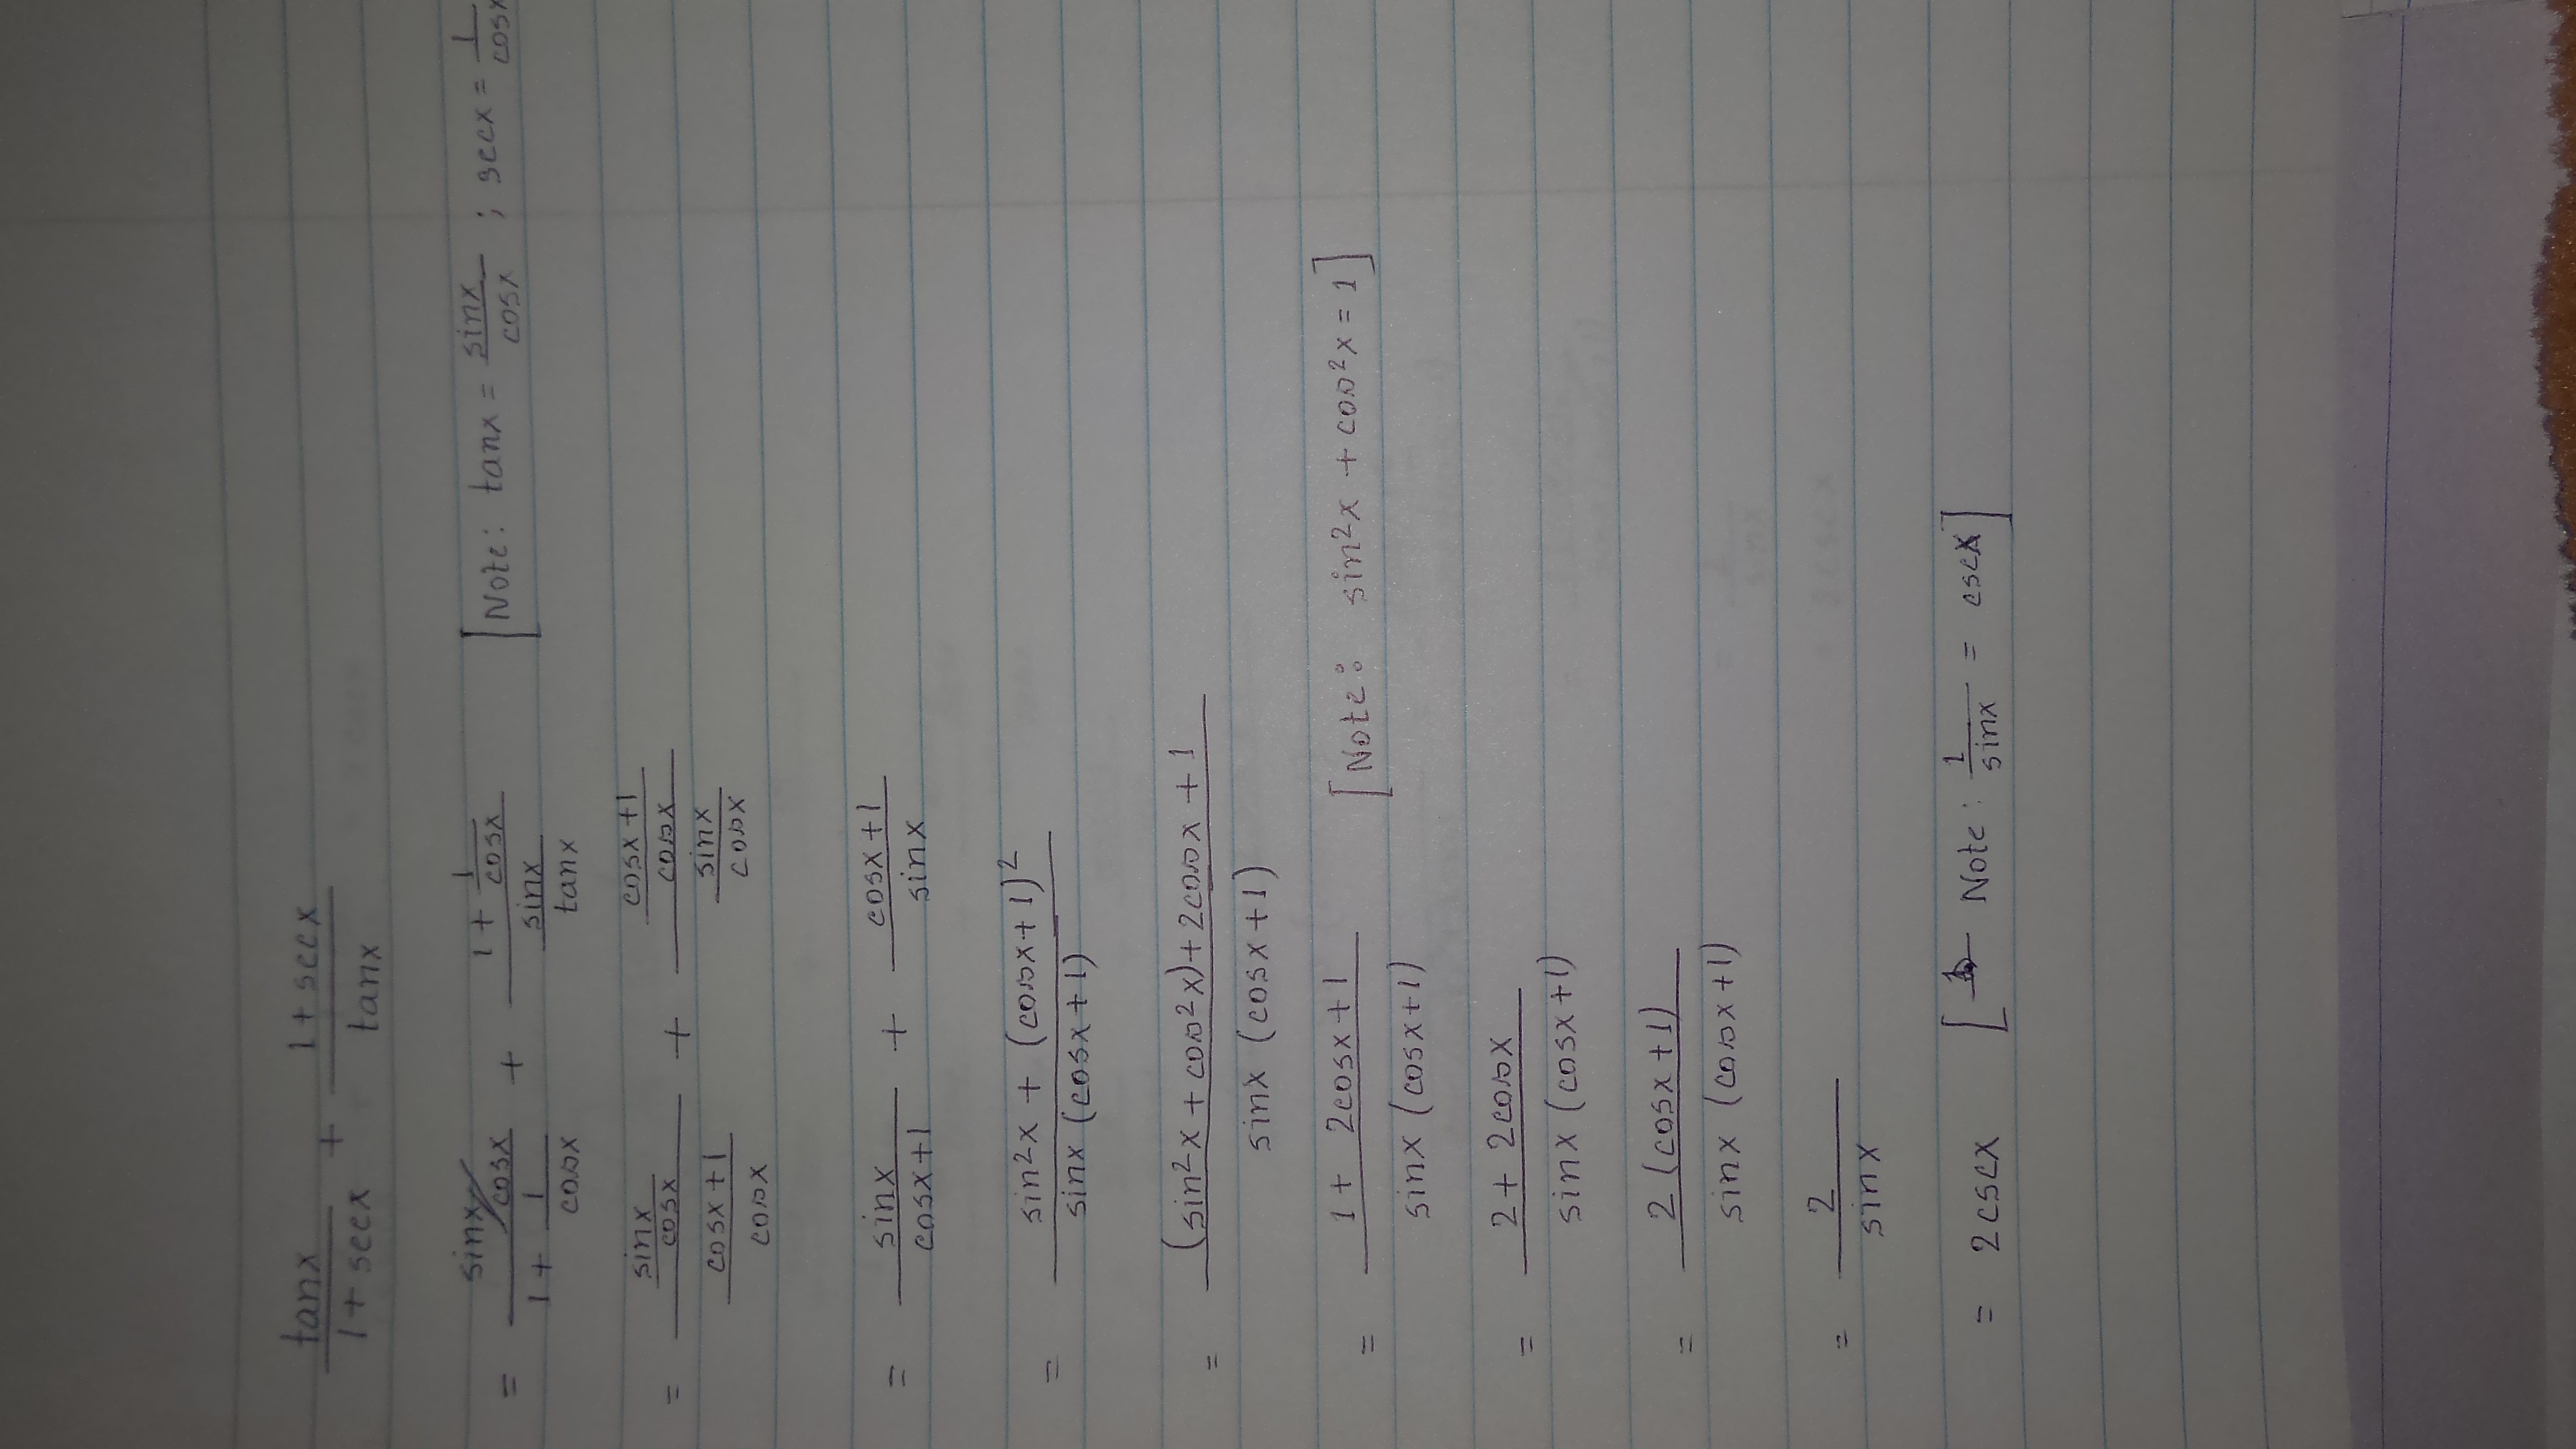 tanx/(1+secx) + (1+secx)/tanx
= (sinx/cosx)/(1+1/cosx) + (1+1/cosx)/(sinx/tanx) [Note: tanx = sinx/cosx ; secx = 1/cosx
= (sinx/cosx)/((cosx+1)/cosx) + ((cosx+1)/cosx)/(sinx/cosx)
= sinx/(cosx+1) + (cosx+1)/sinx
= (sin²x + (cosx+1)²)/(sinx (cosx+1))
= ((sin²x + cos²x)+2cosx+1)/(sinx (cosx+1))
= (1+ 2cosx+1)/(sinx (cosx+1)) [Note: sin²x + cos²x = 1]
= (2+ 2cosx)/(sinx (cosx+1))
= (2 (cosx+1))/(sinx (cosx+1))
= 2/sinx
= 2cscx [Note: 1/sinx = cscx]